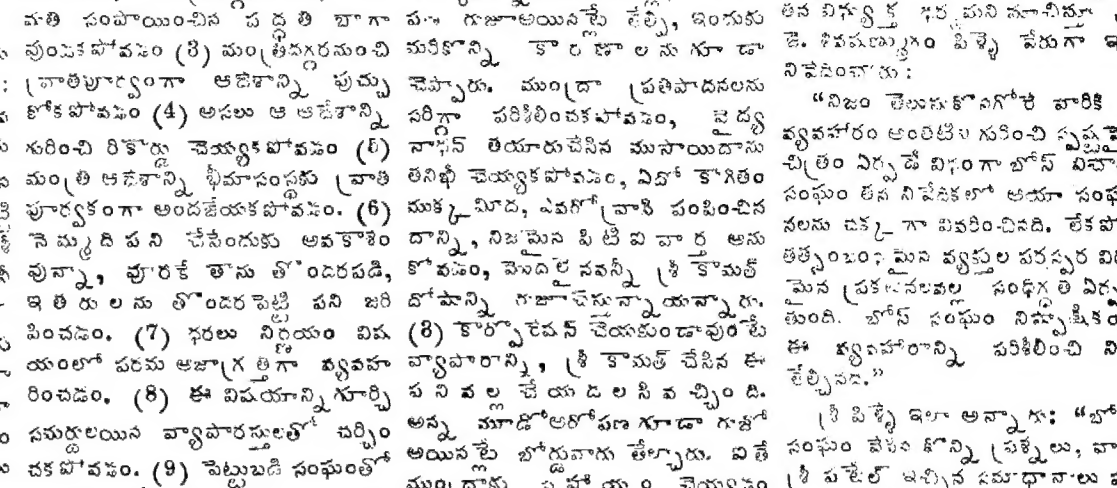 మతి సంపాయించిన పద్ధతి బాగా
వుండకపోవడం (3) మంత్రిదగ్గరనుంచి
వ్రాతపూర్వంగా ఆదేశాన్ని పుచ్చు
కోకపోవడం (4) అసలు ఆ ఆదేశాన్ని
గురించి రికార్డు చెయ్యకపోవడం (5)
మంత్రి ఆదేశాన్ని భీమాసంస్థకు వ్రాత
పూర్వకంగా అందజేయకపోవడం. (6)
నెమ్మదిపని చేసేందుకు అవకాశం
వున్నా, వూరకే తాను తొందరపడి,
ఇతరులను తొందరపెట్టి పని జరి
పించడం. (7) ధరలు నిర్ణయం విష
యంలో పరమ అజాగ్రత్తగా వ్యవహ
రించడం. (8) ఈ విషయాన్ని గూర్చి
సమర్థులయిన వ్యాపారస్తులతో చర్చిం
చకపోవడం. (9) పెట్టుబడి సంఘంతో
రుజూఅయినట్లే తేల్చి, ఇందుకు
మరికొన్ని కారణాలనుగూడా
చెప్పారు. ముంద్రా ప్రతిపాదనలను
సరిగ్గా పరిశీలించకపోవడం, వైద్య
నాథన్ తయారుచేసిన ముసాయిదాను
తనిఖీ చెయ్యకపోవడం, ఏదో కాగితం
ముక్కమీద, ఎవరిగో వ్రాసి పంపించిన
దాన్ని, నిజమైన పిటిఐ వార్త అను
కోవడం, మొదలైనవన్నీ శ్రీ కామత్
దోషాన్ని రుజూచేస్తున్నాయన్నారు.
(8) కార్పొరేషన్ చేయకుండావుండే
వ్యాపారాన్ని, శ్రీ కామత్ చేసిన ఈ
పనివల్ల చేయడలసివచ్చింది.
అన్న మూడోఆరోపణగూడా రుజో
అయినట్లే బోర్డువారు తేల్చారు. ఐతే
ముంద్రాకు సహాయం చెయ్యడం
తన విధ్యుక్త ధర్మమని సూచిస్తూ,
జె. శివషణ్ముగం పిళ్ళై వేరుగా
నివేదించారు:
“నిజం తెలుసుకొనగోరే వారికి
వ్యవహారం అంతటిని గురించి స్పష్టమై
చిత్రం ఏర్పడే విధంగా బోస్ విచా
సంఘం తన నివేదికలో ఆయా సంఘ
నలను చక్కగా వివరించినది. లేకపో
తత్సంబంధమైన వ్యక్తుల పరస్పర విరు
మైన ప్రకటనలవల్ల సందిగ్ధత ఏర్ప
తుంది. బోస్ సంఘం నిష్పాక్షికం
ఈ వ్యవహారాన్ని పరిశీలించి ని
తేల్చినది.”
శ్రీ పిళ్ళై ఇలా అన్నారు: “బో
సంఘం వేసిన కొన్ని ప్రశ్నలు, వా
శ్రీ పటేల్ ఇచ్చిన సమాధానాలు